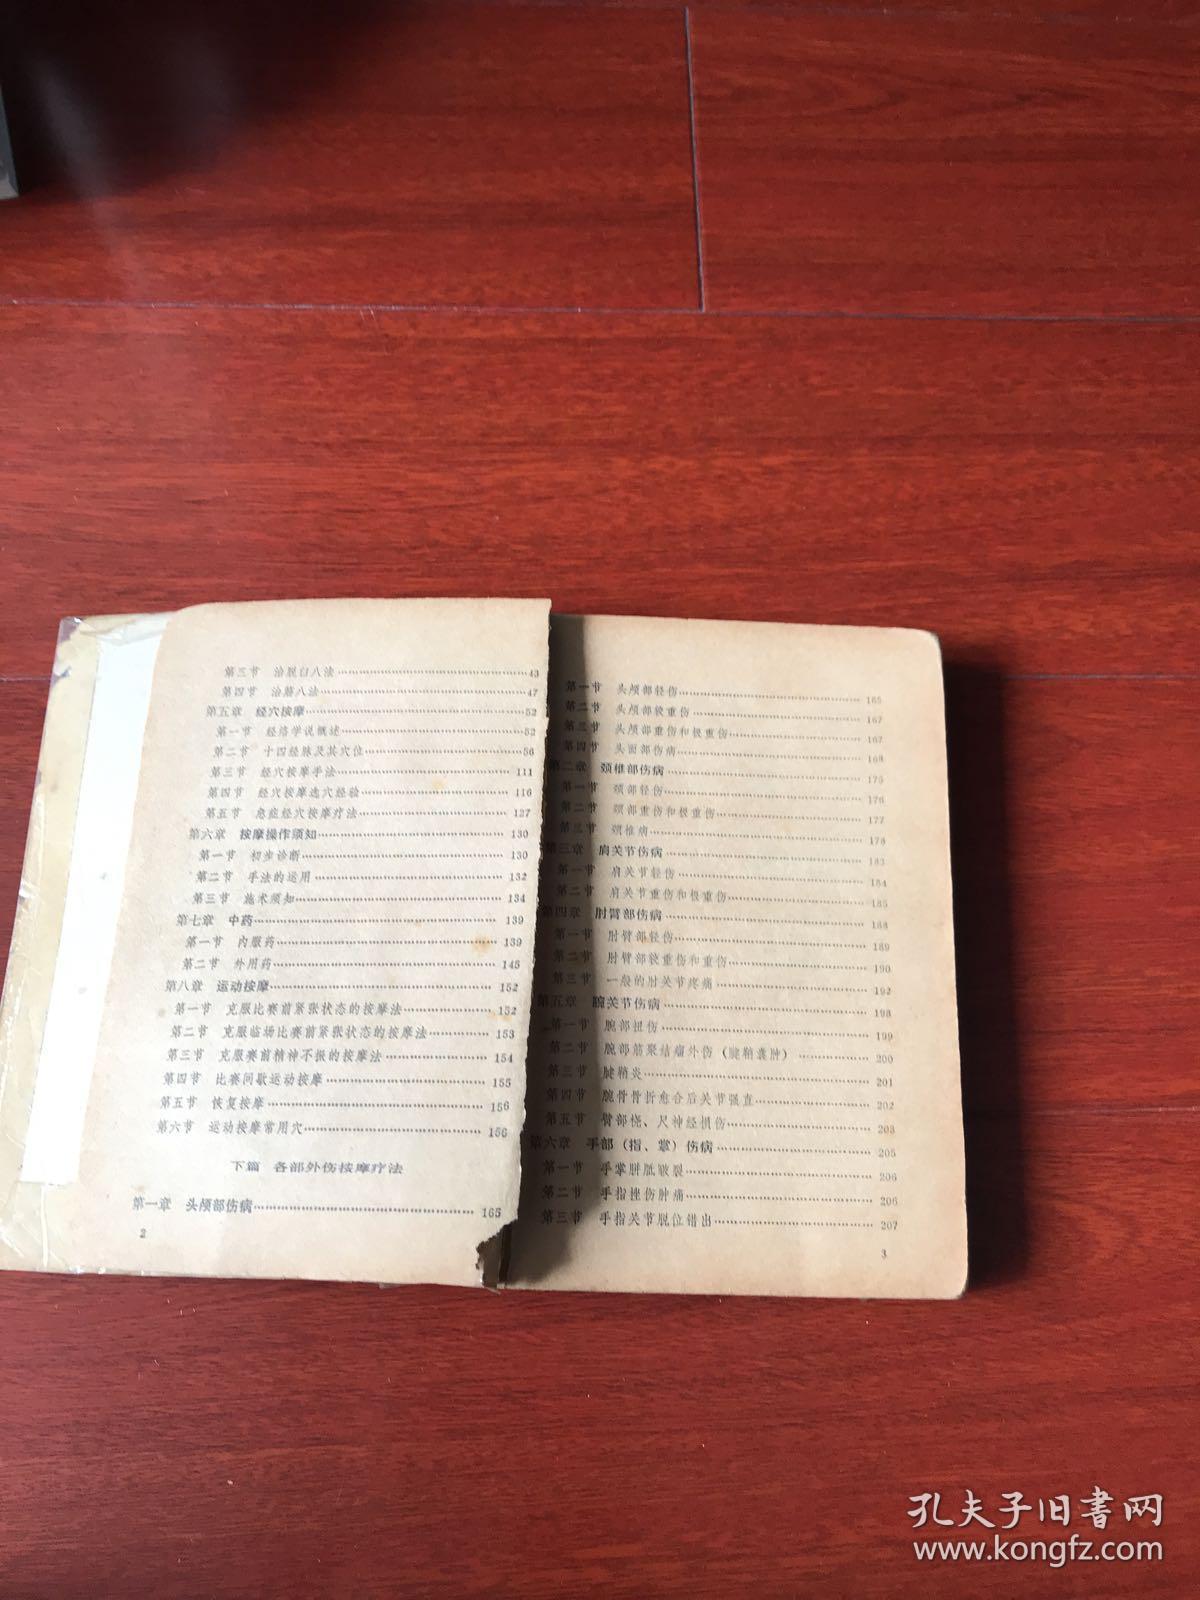 第三节 治脱臼八法……43
第四节 治筋八法……47
第五章 经穴按摩……52
第一节 经络学说概述……52
第二节 十四经脉及其穴位……56
第三节 经穴按摩手法……111
第四节 经穴按摩选穴经验……116
第五节 急症经穴按摩疗法……127
第六章 按摩操作须知……130
第一节 初步诊断……130
第二节 手法的运用……132
第三节 施术须知……134
第七章 中药……139
第一节 内服药……139
第二节 外用药……145
第八章 运动按摩……152
第一节 克服比赛前紧张状态的按摩法……152
第二节 克服临场比赛前紧张状态的按摩法……153
第三节 克服赛前精神不振的按摩法……154
第四节 比赛间歇运动按摩……155
第五节 恢复按摩……156
第六节 运动按摩常用穴……156
下篇 各部外伤按摩疗法
第一章 头颅部伤病……165
2
第一节 头颅部轻伤……165
第二节 头颅部较重伤……167
第三节 头颅部重伤和极重伤……167
第四节 头面部伤病……168
第二章 颈椎部伤病……175
第一节 颈部轻伤……176
第二节 颈部重伤和极重伤……177
第三节 颈椎病……178
第三章 肩关节伤病……183
第一节 肩关节轻伤……184
第二节 肩关节重伤和极重伤……185
第四章 肘臂部伤病……188
第一节 肘臂部轻伤……189
第二节 肘臂部较重伤和重伤……190
第三节 一般的肘关节疼痛……192
第五章 腕关节伤病……198
第一节 腕部扭伤……199
第二节 腕部筋聚结瘤外伤（腱鞘囊肿）……200
第三节 腱鞘炎……201
第四节 腕骨骨折愈合后关节强直……202
第五节 臂部桡、尺神经损伤……203
第六章 手部（指、掌）伤病……205
第一节 手掌胼胝皲裂……206
第二节 手指挫伤肿痛……206
第三节 手指关节脱位错出……207
3
孔夫子旧书网
www.kongfz.com